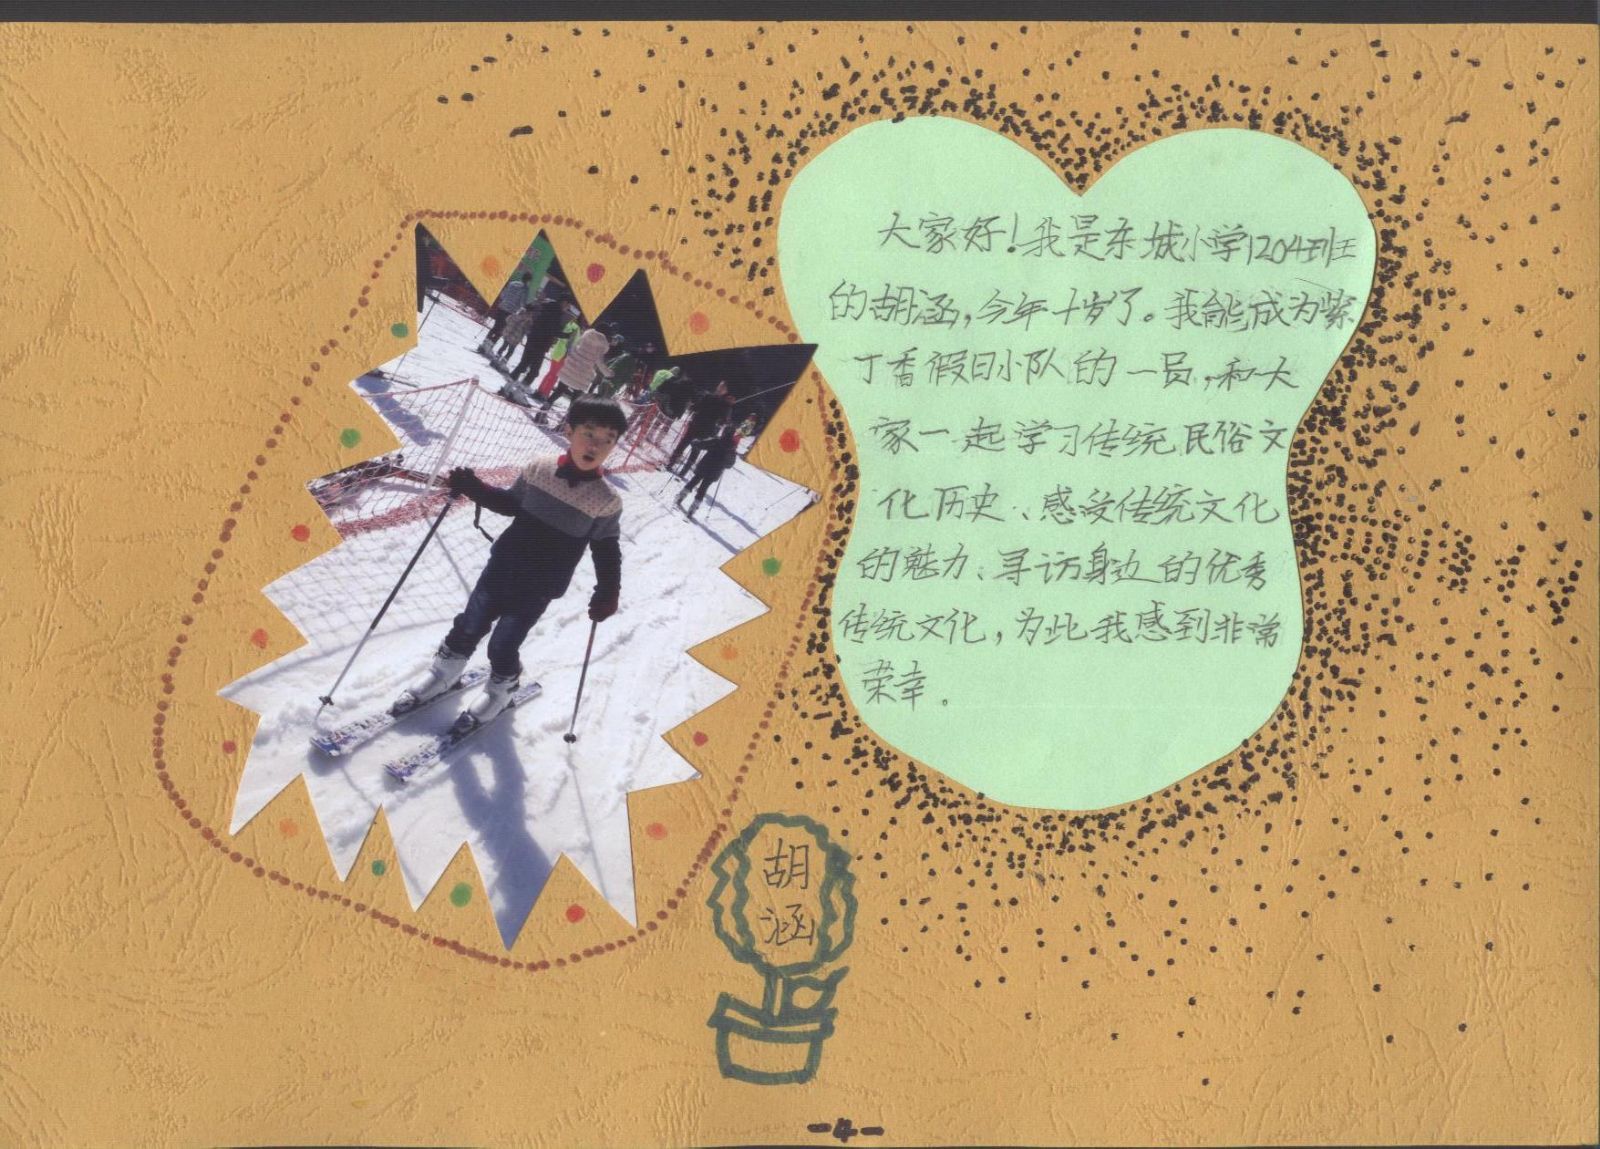 大家好！我是东城小学1204班
的胡涵，今年十岁了。我能成为紫
丁香假日小队的一员，和大
家一起学习传统民俗文
化历史、感受传统文化
的魅力、寻访身边的优秀
传统文化，为此我感到非常
荣幸。
胡
涵
-4-